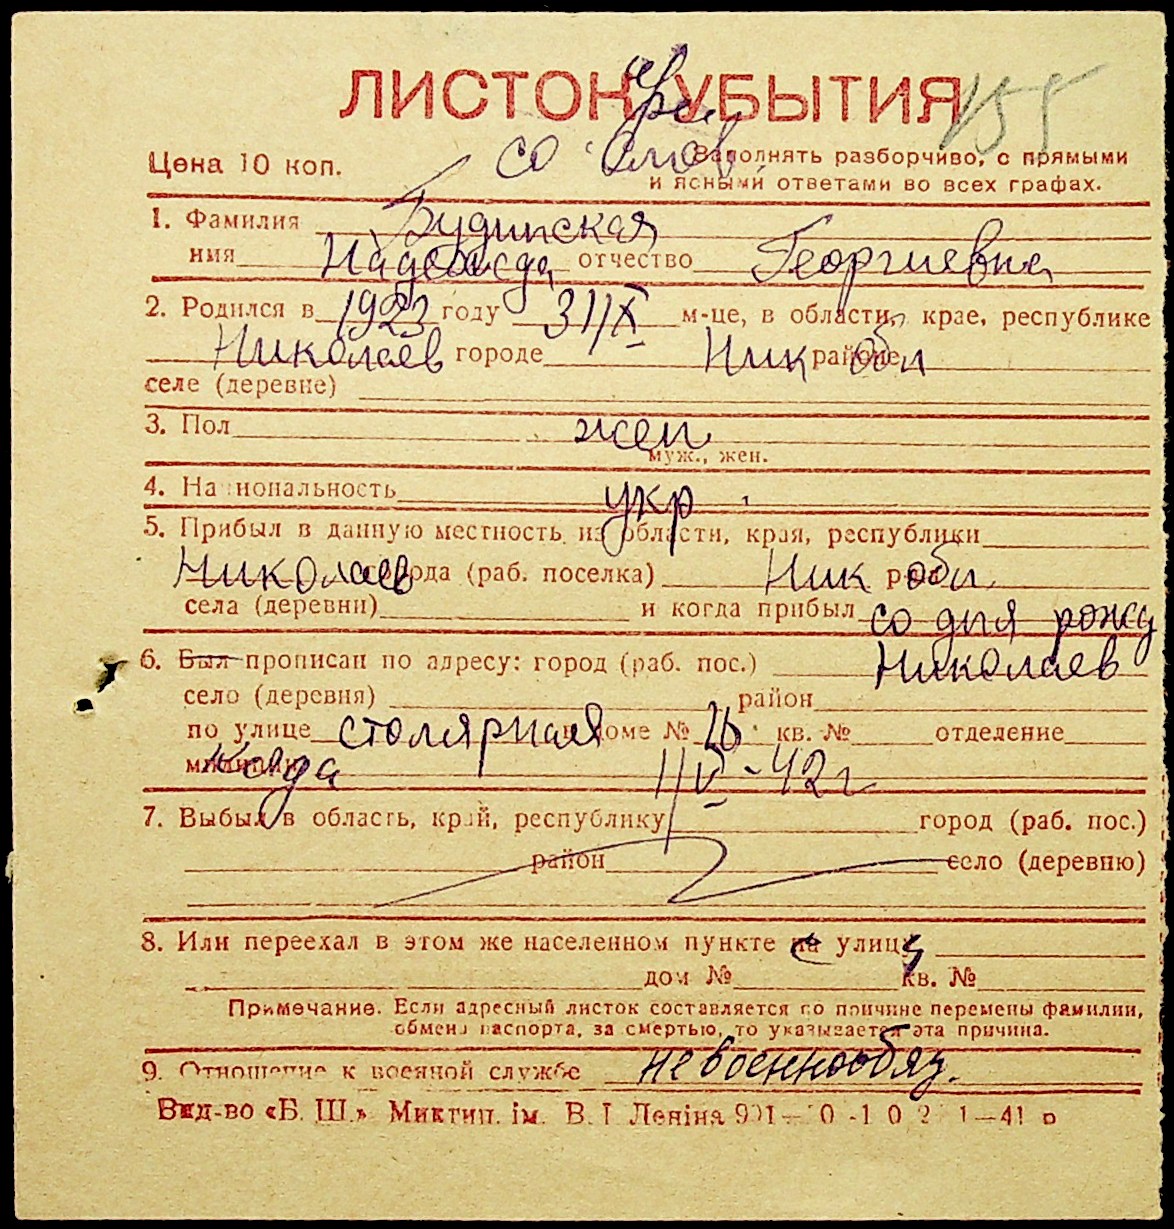 ЛИСТОК УБЫТИЯ 155
со слов
Цена 10 коп. Заполнять разборчиво, с прямыми
и ясными ответами во всех графах.
1. Фамилия Будинская
имя Надежда отчество Георгиевна
2. Родился в 1923 году 31/IX м-це, в области, крае, республике
Николаев городе Ник районе обл
селе (деревне)
3. Пол жен
муж., жен.
4. Национальность укр.
5. Прибыл в данную местность из области, края, республики
Николаев города (раб. поселка) Ник обл.
села (деревни) и когда прибыл со дня рожд
6. Был прописан по адресу: город (раб. пос.) Николаев
село (деревня) район
по улице столярная в доме № кв. № отделение
милиции когда 1/IV-42 г
7. Выбыл в область, край, республику город (раб. пос.)
район село (деревню)
8. Или переехал в этом же населенном пункте на улицу
дом № кв. №
Примечание. Если адресный листок составляется по причине перемены фамилии,
обмена паспорта, за смертью, то указывается эта причина.
9. Отношение к военной службе невоеннообяз.
Вид-во «Б. Ш.» Миктип. ім. В. І Леніна